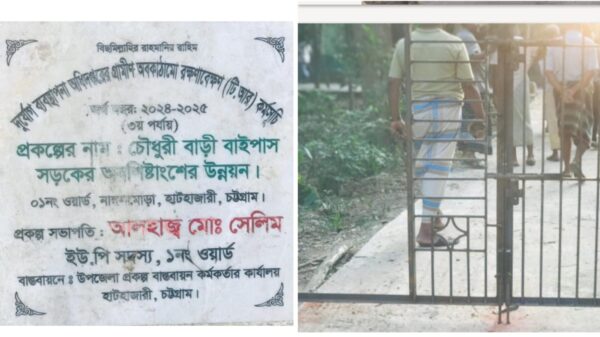 বিছমিল্লাহির রাহমানির রাহিম
দুর্যোগ ব্যবস্থাপনা অধিদপ্তরের গ্রামীণ অবকাঠামো রক্ষণাবেক্ষণ (টি.আর) কর্মসূচি
অর্থ বছর: ২০২৪-২০২৫
(৩য় পর্যায়)
প্রকল্পের নাম : চৌধুরী বাড়ী বাইপাস
সড়কের অবশিষ্টাংশের উন্নয়ন।
০১নং ওয়ার্ড, নাঙ্গলমোড়া, হাটহাজারী, চট্টগ্রাম।
প্রকল্প সভাপতি : আলহাজ্ব মোঃ সেলিম
ইউ.পি সদস্য, ১নং ওয়ার্ড
বাস্তবায়নে : উপজেলা প্রকল্প বাস্তবায়ন কর্মকর্তার কার্যালয়
হাটহাজারী, চট্টগ্রাম।